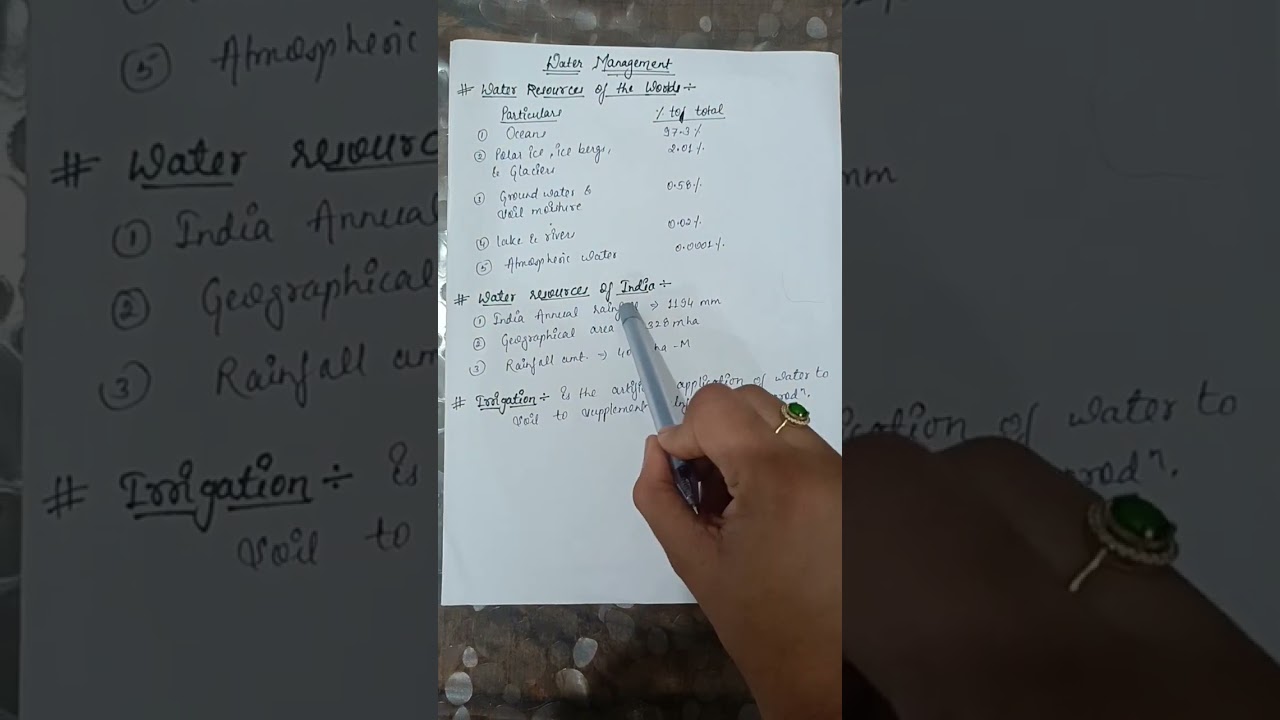 Water Management
# Water Resources of the Woods ÷
Particulars % to/of total
① Oceans 97.3%
② Polar ice, ice bergs, 2.01%
& Glaciers
③ Ground water & 0.58%
soil moisture
④ lake & rivers 0.02%
⑤ Atmospheric water 0.0001%
# Water resources of India ÷
① India Annual → 1194 mm
② Geographical area 328 mha
③ Rainfall amt. → ha-M
# Irrigation ÷ Is the application of water to
soil to supplement